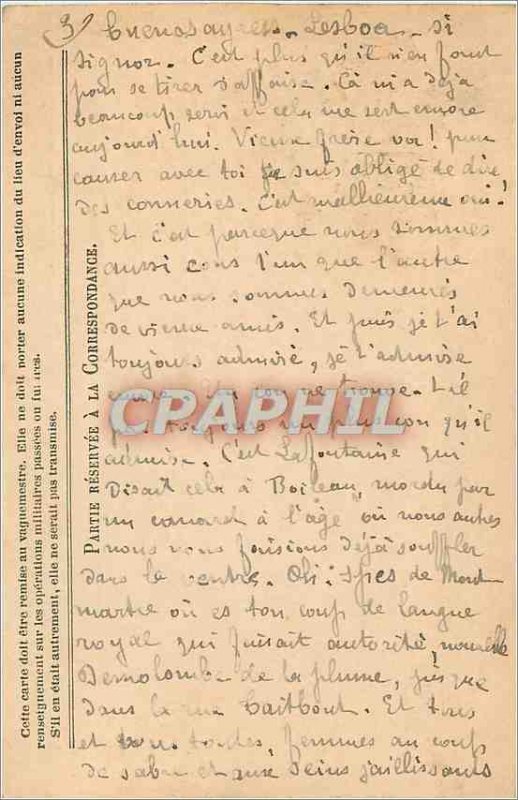 3) Buenos ayres - Lesboa - Si
Signor. C'est plus qu'il n'en faut
pour se tirer d'affaire. Cà m'a déjà
beaucoup servi et cela me sert encore
aujourd'hui. Vieux frère va! pour
causer avec toi je suis obligé de dire
des conneries. C'est malheureux oui!
Et c'est parceque nous sommes
aussi cons l'un que l'autre
que nous sommes demeurés
de vieux amis. Et puis je t'ai
toujours admiré, je t'admire
encore. Un con ne trouve-t-il
pas toujours un plus con qu'il
admire. C'est Lafontaine qui
disait cela à Boileau, mordu par
un canard à l'âge où nous autres
nous nous faisions déjà souffler
dans le ventre. Oh! de Mont
martre où es ton coup de langue
royal qui faisait autorité, nouvelle
de la plume, jusque
dans la rue Taitbout. Et tous
et toutes, femmes au coup
de sabre et aux seins jaillissants
PARTIE RÉSERVÉE À LA CORRESPONDANCE.
Cette carte doit être remise au vaguemestre. Elle ne doit porter aucune indication du lieu d'envoi ni aucun
renseignement sur les opérations militaires passées ou futures.
S'il en était autrement, elle ne serait pas transmise.
CPARPHIL